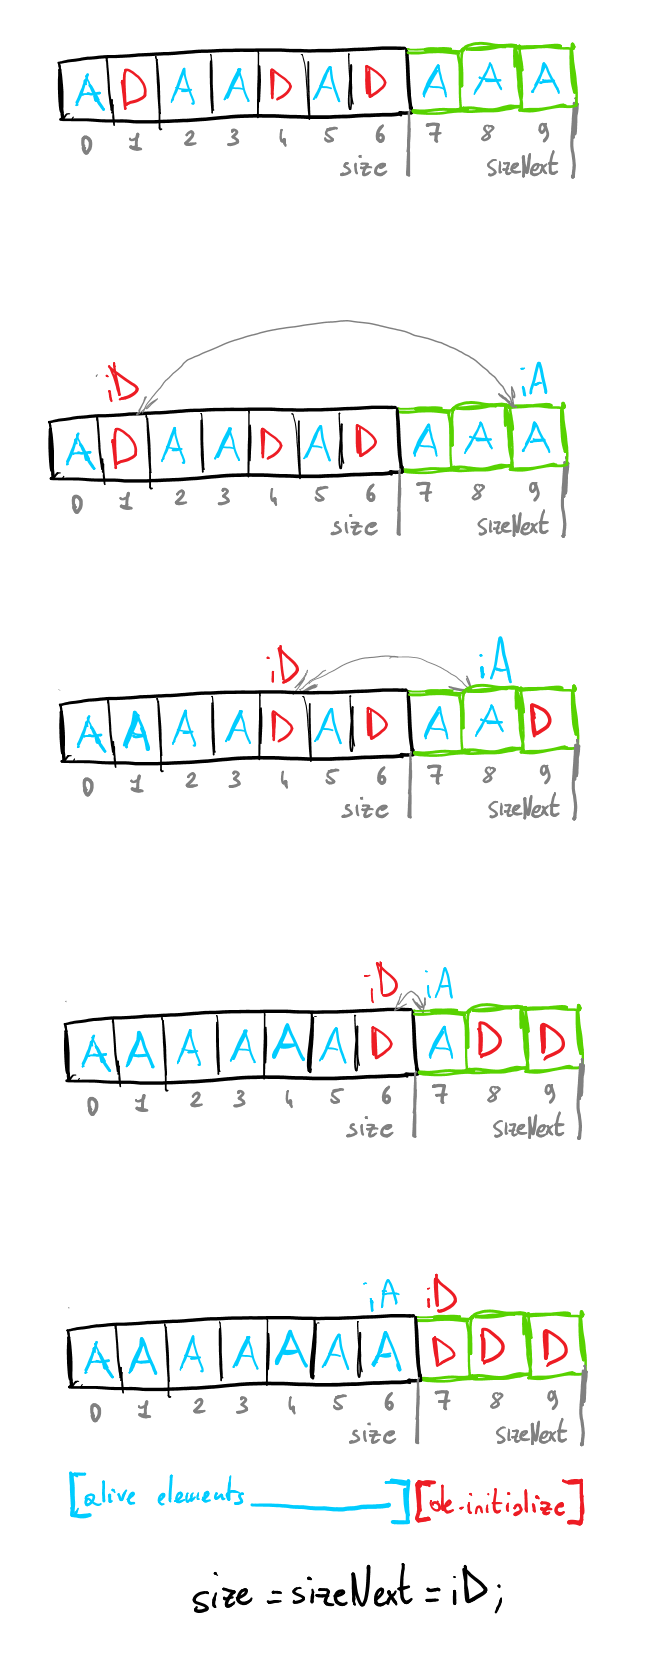 A D A A D A D A A A
0 1 2 3 4 5 6 7 8 9
size sizeNext
iD iA
A D A A D A D A A A
0 1 2 3 4 5 6 7 8 9
size sizeNext
iD iA
A A A A D A D A A D
0 1 2 3 4 5 6 7 8 9
size sizeNext
iD iA
A A A A A A D A D D
0 1 2 3 4 5 6 7 8 9
size sizeNext
iA iD
A A A A A A A D D D
0 1 2 3 4 5 6 7 8 9
size sizeNext
[alive elements____] [de-initialize]
size = sizeNext = iD;